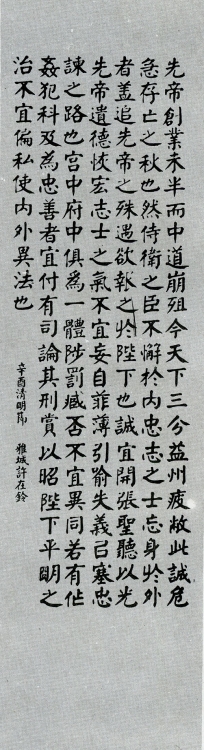 先帝創業未半而中道崩殂今天下三分益州疲敝此誠危
急存亡之秋也然侍衛之臣不懈於內忠志之士忘身於外
者盖追先帝之殊遇欲報之於陛下也誠宜開張聖聽以光
先帝遺德恢宏志士之氣不宜妄自菲薄引喻失義以塞忠
諫之路也宮中府中俱為一體陟罰臧否不宜異同若有作
姦犯科及為忠善者宜付有司論其刑賞以昭陛下平明之
治不宜偏私使內外異法也
辛酉清明節 雅城許在鈴